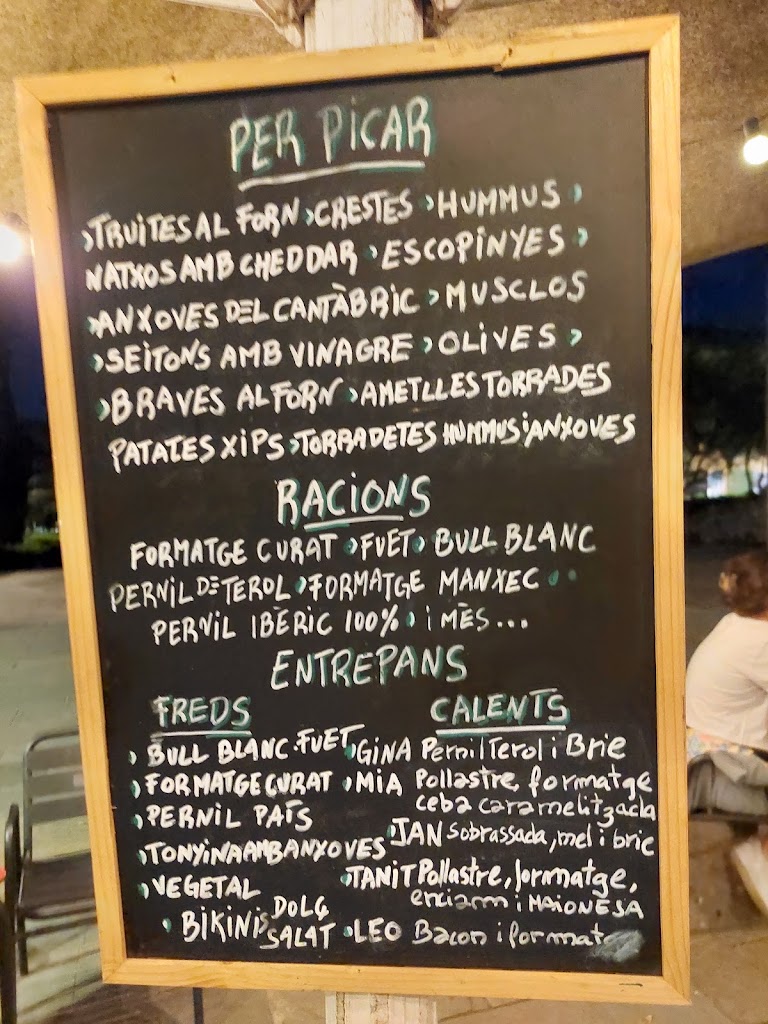 PER PICAR
›TRUITES AL FORN ›CRESTES ›HUMMUS ›
NATXOS AMB CHEDDAR ›ESCOPINYES ›
›ANXOVES DEL CANTÀBRIC ›MUSCLOS
›SEITONS AMB VINAGRE ›OLIVES ›
›BRAVES AL FORN ›AMETLLES TORRADES
PATATES XIPS ›TORRADETES HUMMUS i ANXOVES
RACIONS
FORMATGE CURAT ›FUET› BULL BLANC
PERNIL DE TEROL ›FORMATGE MANXEC ··
PERNIL IBÈRIC 100% › i MÈS...
ENTREPANS
FREDS
› BULL BLANC·FUET
›FORMATGE CURAT
›PERNIL PAÍS
›TONYINA AMB ANXOVES
›VEGETAL
· BIKINIS DOLÇ
SALAT
CALENTS
›GINA Pernil Terol i Brie
›MIA Pollastre, formatge
ceba caramelitzada
›JAN Sobrassada, mel i bric
›TANIT Pollastre, formatge,
enciam i MAIONESA
·LEO Bacon i format